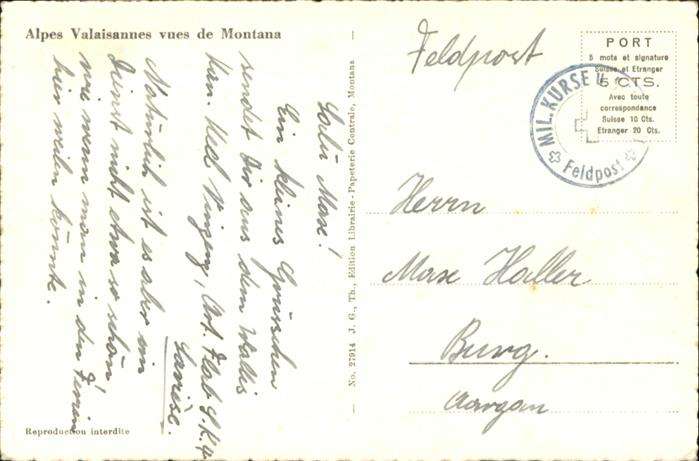 Alpes Valaisannes vues de Montana
Salü Max!
Ein kleines Grüsschen
sendet Dir aus dem Wallis
Kan.
Savièse.
Natürlich ist es aber im
Dienst nicht etwa so schön,
wie wenn man in den Ferien
hier weilen könnte.
Reproduction interdite
No. 27914 J. G., Th., Edition Librairie-Papeterie Centrale, Montana
Feldpost
PORT
5 mots et signature
Suisse et Etranger
5 CTS.
Avec toute
correspondance
Suisse 10 Cts.
Etranger 20 Cts.
MIL. KURSE U.
Feldpost
Herrn
Max Haller
Burg.
Aargau